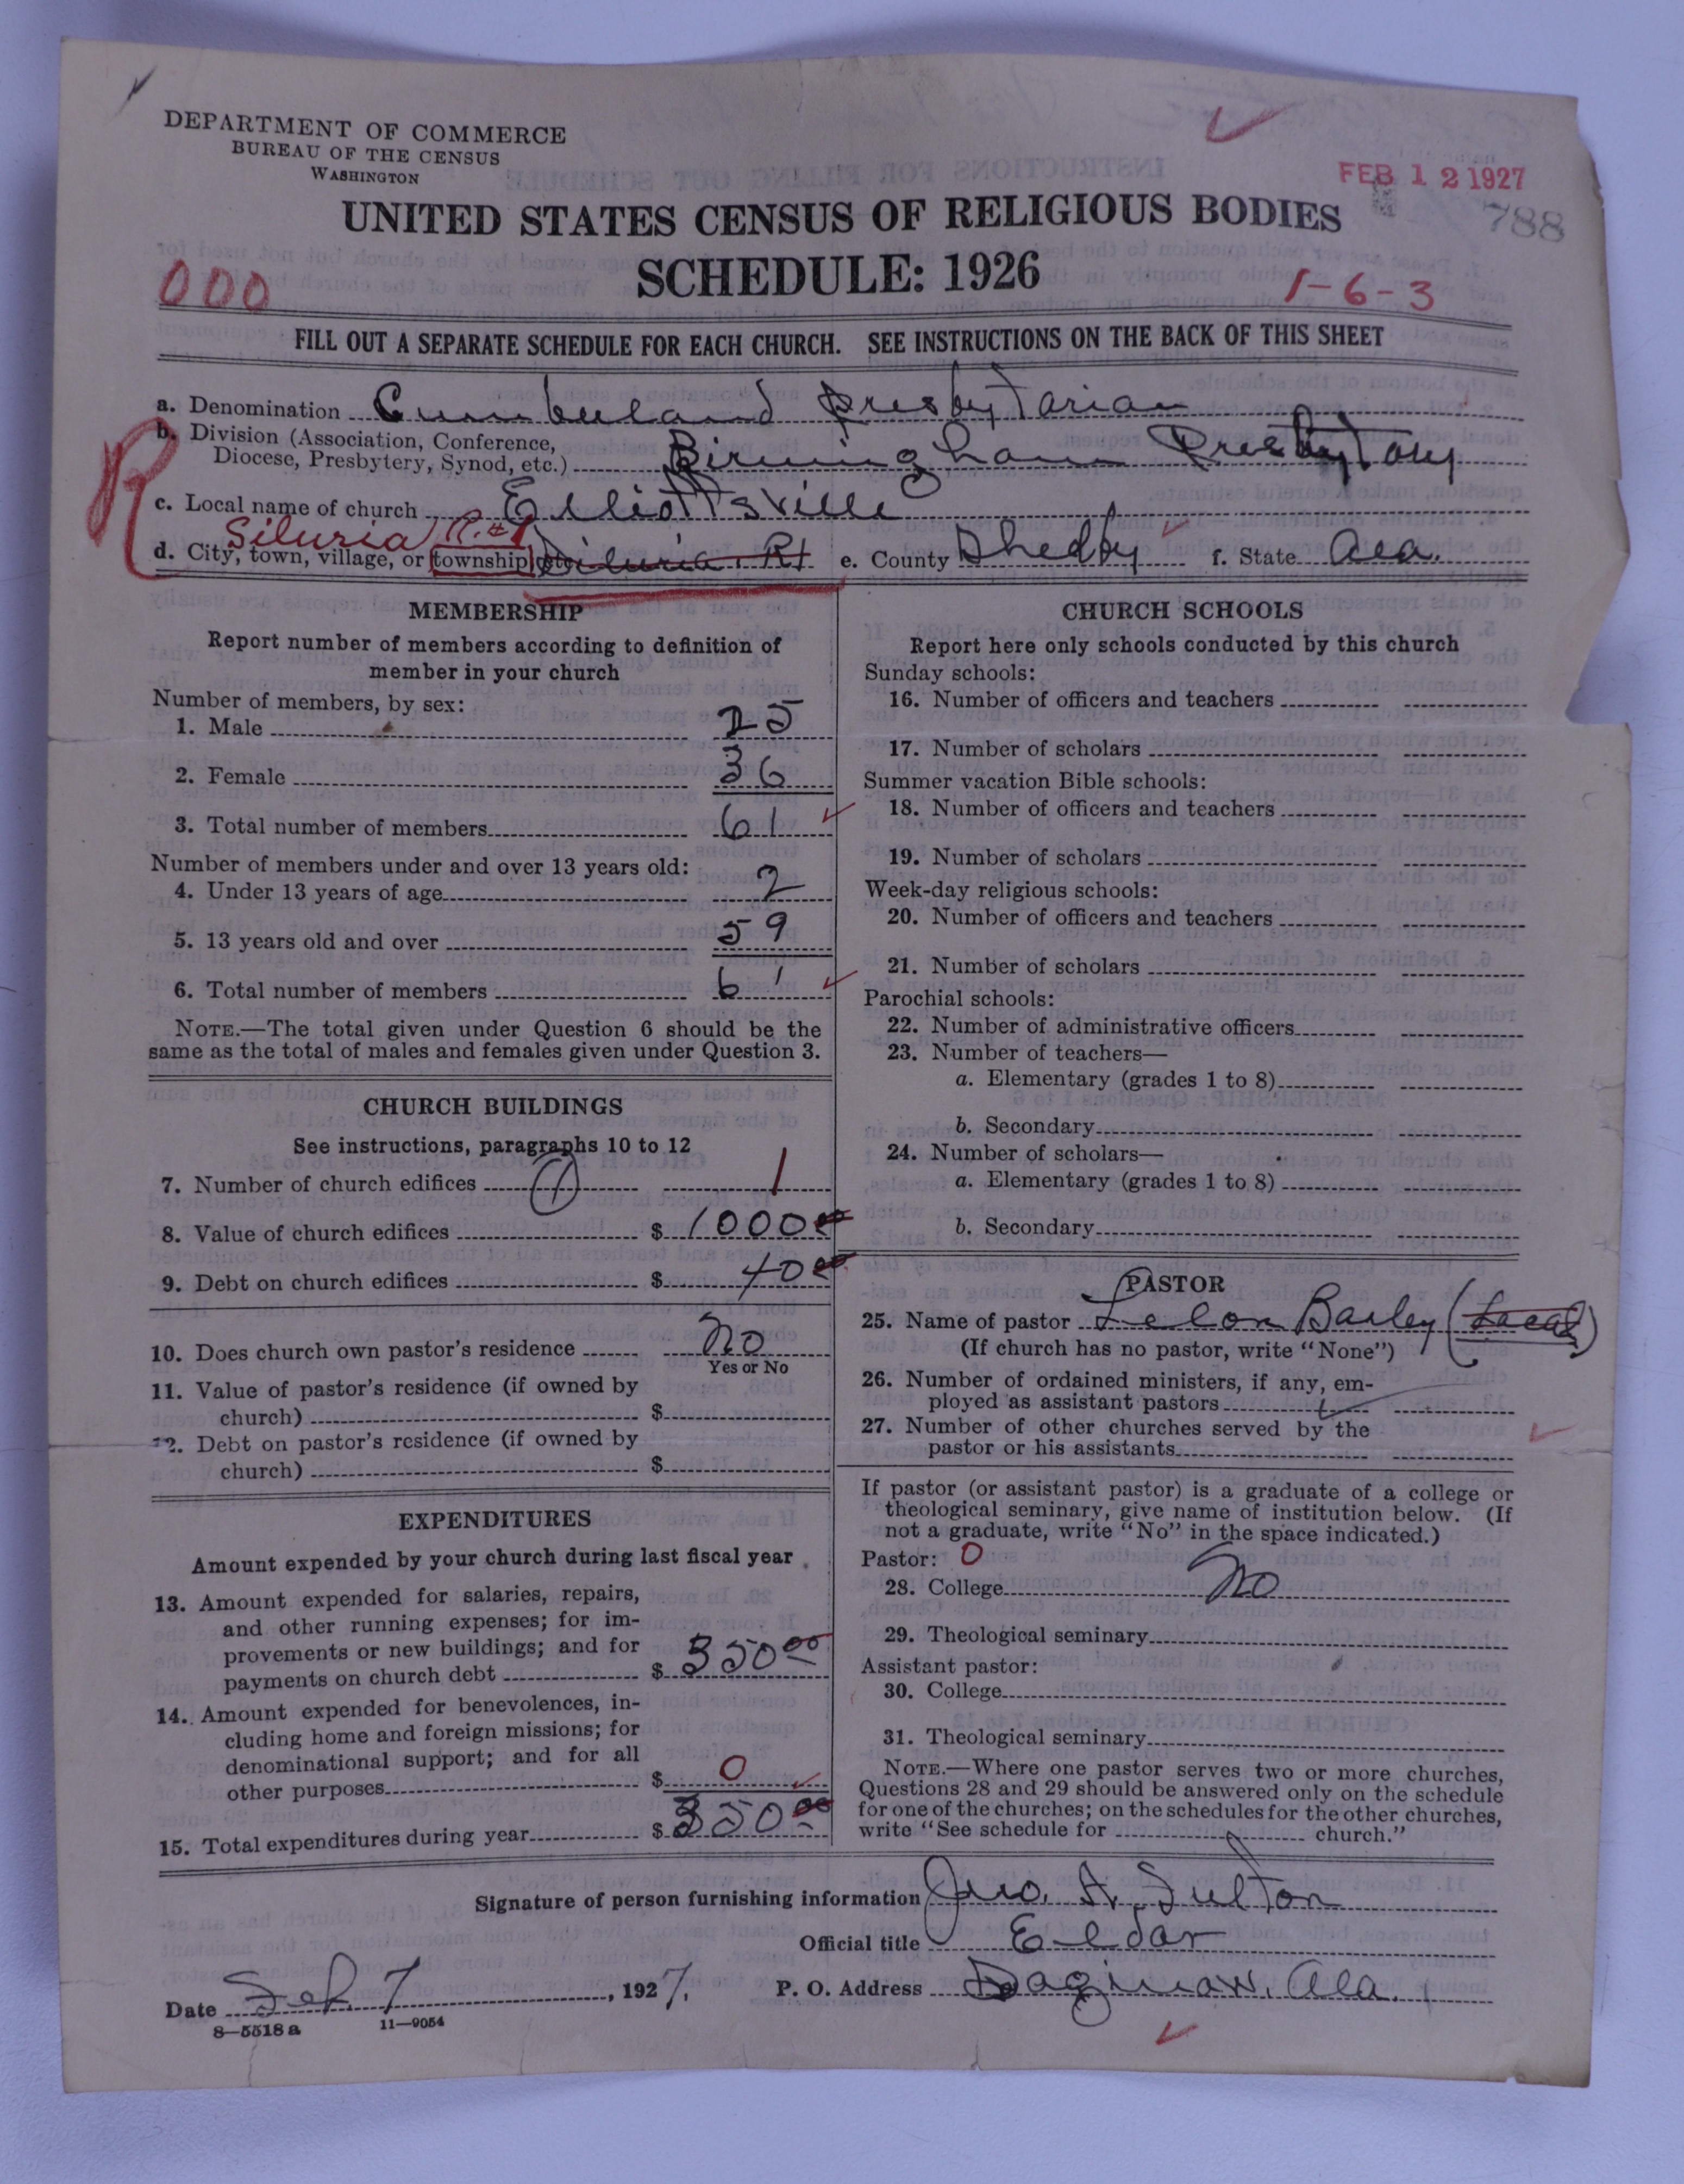 DEPARTMENT OF COMMERCE
BUREAU OF THE CENSUS
WASHINGTON
FEB 12 1927
788
UNITED STATES CENSUS OF RELIGIOUS BODIES
SCHEDULE: 1926
000
1-6-3
FILL OUT A SEPARATE SCHEDULE FOR EACH CHURCH. SEE INSTRUCTIONS ON THE BACK OF THIS SHEET
a. Denomination Cumberland Presbytarian
b. Division (Association, Conference, Diocese, Presbytery, Synod, etc.) Birmingham Presbytary
R
c. Local name of church Elliottsville
Siluria R.#1
d. City, town, village, or township, etc. Siluria. R1 e. County Shelby f. State Ala.
MEMBERSHIP
Report number of members according to definition of
member in your church
Number of members, by sex:
1. Male 25
2. Female 36
3. Total number of members 61
Number of members under and over 13 years old:
4. Under 13 years of age 2
5. 13 years old and over 59
6. Total number of members 61
NOTE.—The total given under Question 6 should be the
same as the total of males and females given under Question 3.
CHURCH BUILDINGS
See instructions, paragraphs 10 to 12
7. Number of church edifices 1 1
8. Value of church edifices $ 1000 00
9. Debt on church edifices $ 40 00
10. Does church own pastor's residence No
Yes or No
11. Value of pastor's residence (if owned by
church) $
12. Debt on pastor's residence (if owned by
church) $
EXPENDITURES
Amount expended by your church during last fiscal year
13. Amount expended for salaries, repairs,
and other running expenses; for im-
provements or new buildings; and for
payments on church debt $ 350 00
14. Amount expended for benevolences, in-
cluding home and foreign missions; for
denominational support; and for all
other purposes $ 0
15. Total expenditures during year $ 350 00
CHURCH SCHOOLS
Report here only schools conducted by this church
Sunday schools:
16. Number of officers and teachers
17. Number of scholars
Summer vacation Bible schools:
18. Number of officers and teachers
19. Number of scholars
Week-day religious schools:
20. Number of officers and teachers
21. Number of scholars
Parochial schools:
22. Number of administrative officers
23. Number of teachers—
a. Elementary (grades 1 to 8)
b. Secondary
24. Number of scholars—
a. Elementary (grades 1 to 8)
b. Secondary
PASTOR
25. Name of pastor Lelon Bailey (Local)
(If church has no pastor, write "None")
26. Number of ordained ministers, if any, em-
ployed as assistant pastors
27. Number of other churches served by the
pastor or his assistants
If pastor (or assistant pastor) is a graduate of a college or
theological seminary, give name of institution below. (If
not a graduate, write "No" in the space indicated.)
Pastor: 0
28. College No
29. Theological seminary
Assistant pastor:
30. College
31. Theological seminary
NOTE.—Where one pastor serves two or more churches,
Questions 28 and 29 should be answered only on the schedule
for one of the churches; on the schedules for the other churches,
write "See schedule for church."
Signature of person furnishing information Jno. A. Fulton
Official title Eldar
Date Feb. 7, 1927. P. O. Address Saginaw, Ala.
8—5518 a 11—9054